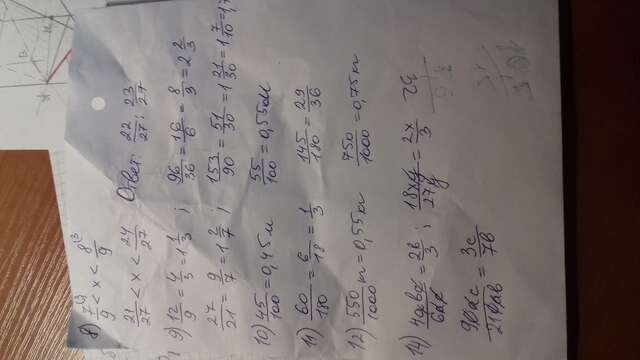 8) 7/9 ⁽³ < x < 8/9 ⁽³
21/27 < x < 24/27 Ответ: 22/27; 23/27
9) 12/9 = 4/5 = 1 1/3 ; 96/36 = 16/6 = 8/3 = 2 2/3
27/21 = 9/7 = 1 2/7 ; 153/90 = 51/30 = 1 21/30 = 1 7/10 = 1,7
10) 45/100 = 0,45 м 55/100 = 0,55 м
11) 60/180 = 6/18 = 1/3 145/180 = 29/36
12) 550/1000 кг = 0,55 кг 750/1000 = 0,75 кг
14) 4авс/6ас = 2в/3 ; 18xy/27y = 2x/3
90ас/210ав = 3с/7в